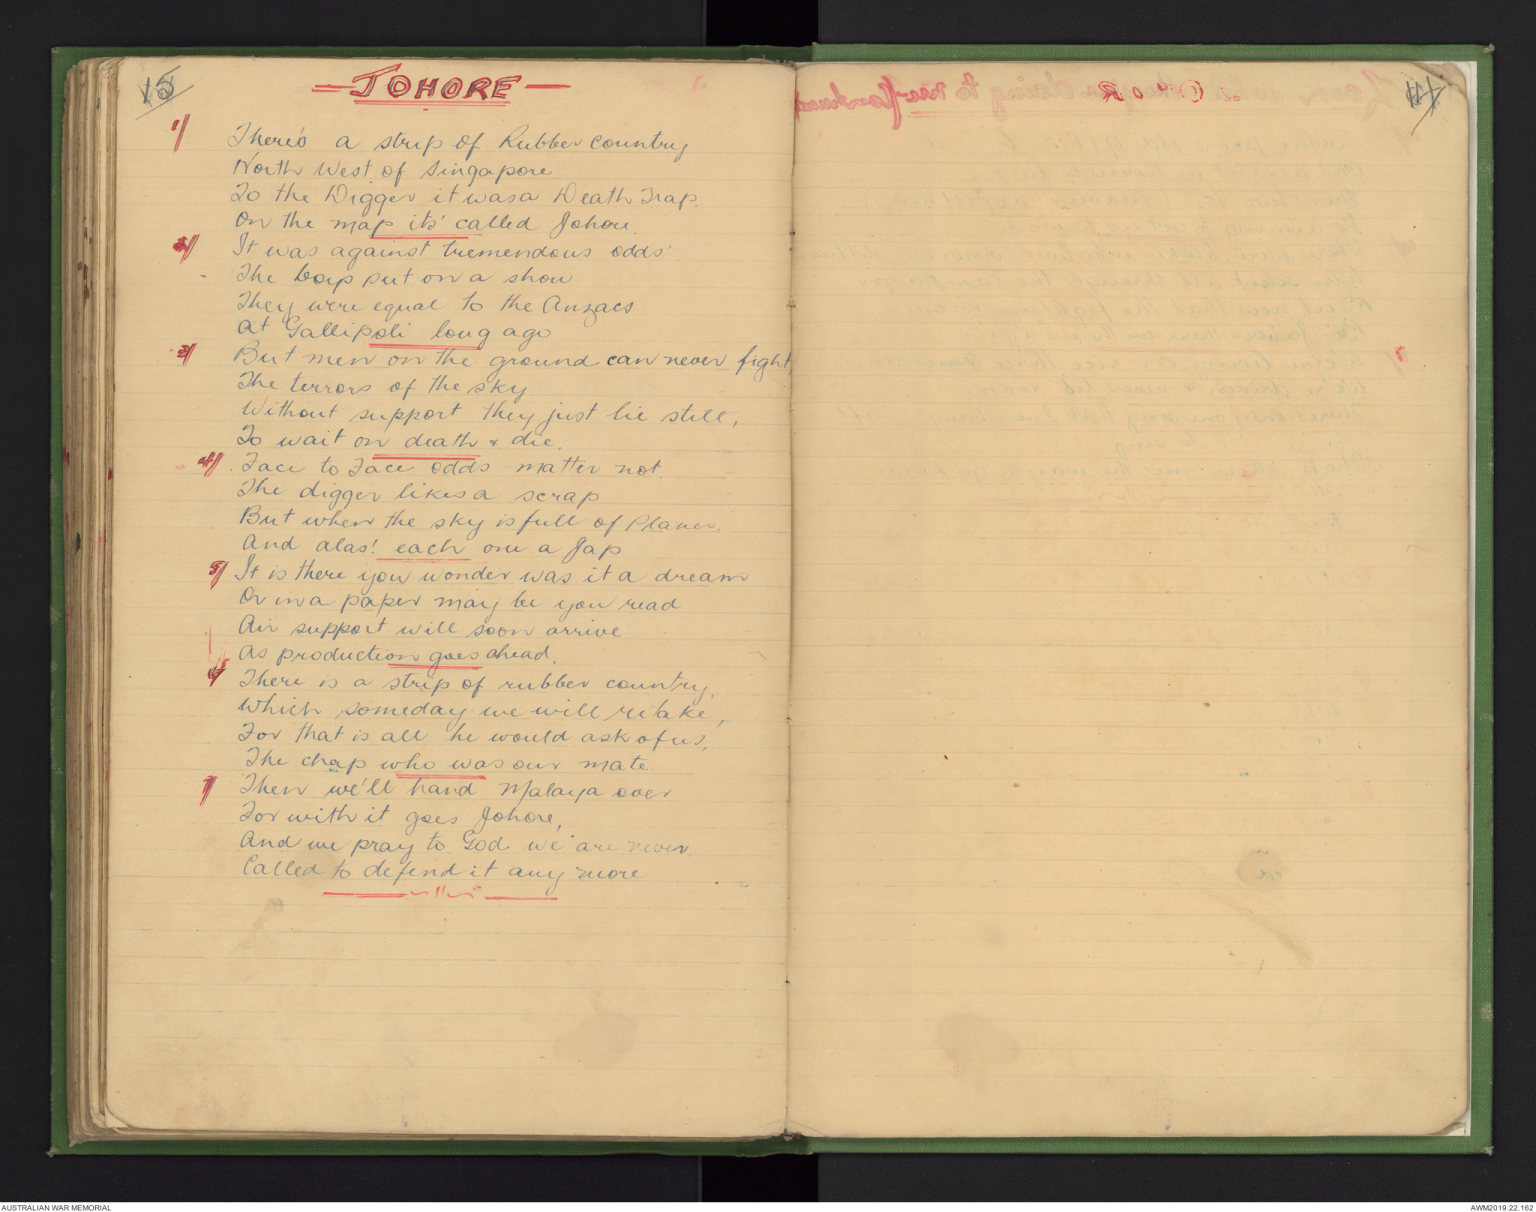 15
JOHORE
1/ There's a strip of Rubber country
North West of Singapore
To the Digger it was a Death Trap.
On the map its' called Johore.
2/ It was against tremendous odds'
The boys put on a show
They were equal to the Anzacs
At Gallipoli long ago
3/ But men on the ground can never fight
The terrors of the sky
Without support they just lie still,
To wait on death & die.
4/ Face to Face odds matter not.
The digger likes a scrap
But when the sky is full of Planes.
And alas! each one a Jap
5/ It is there you wonder was it a dream
Or in a paper may be you read
Air support will soon arrive
As production goes ahead.
6/ There is a strip of rubber country,
Which someday we will retake,
For that is all he would ask of us,
The chap who was our mate
7/ Then we'll hand Malaya over
For with it goes Johore,
And we pray to God we are never
Called to defend it any more
AUSTRALIAN WAR MEMORIAL
AWM2019.22.162